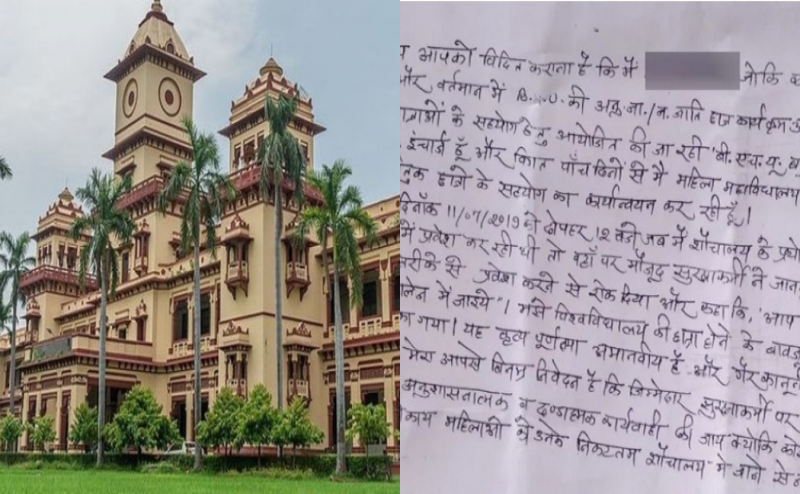 आपको विदित कराना है कि मैं जोकि
और वर्तमान में B.H.U. की अनु.जा./ज.जाति छात्र कार्यक्रम
के सहयोग हेतु आयोजित की जा रही 'बी.एच.यू.
इंचार्ज हूँ और विगत पाँच दिनों से मैं महिला महाविद्यालय
छात्रों के सहयोग का कार्यान्वयन कर रही हूँ।
11/07/2019 को दोपहर 12 बजे जब मैं शौचालय के
में प्रवेश कर रही थी तो वहाँ पर मौजूद सुरक्षाकर्मी ने
से प्रवेश करने से रोक दिया और कहा कि, 'आप
में जाइये'। मुझे विश्वविद्यालय की छात्रा होने के
गया। यह कृत्य पूर्णतया अमानवीय है और गैर
मेरा आपसे विनम्र निवेदन है कि जिम्मेदार सुरक्षाकर्मी पर
अनुशासनात्मक व दण्डात्मक कार्यवाही की जाय क्योंकि
महिलाओं को उनके निकटतम शौचालय में जाने से